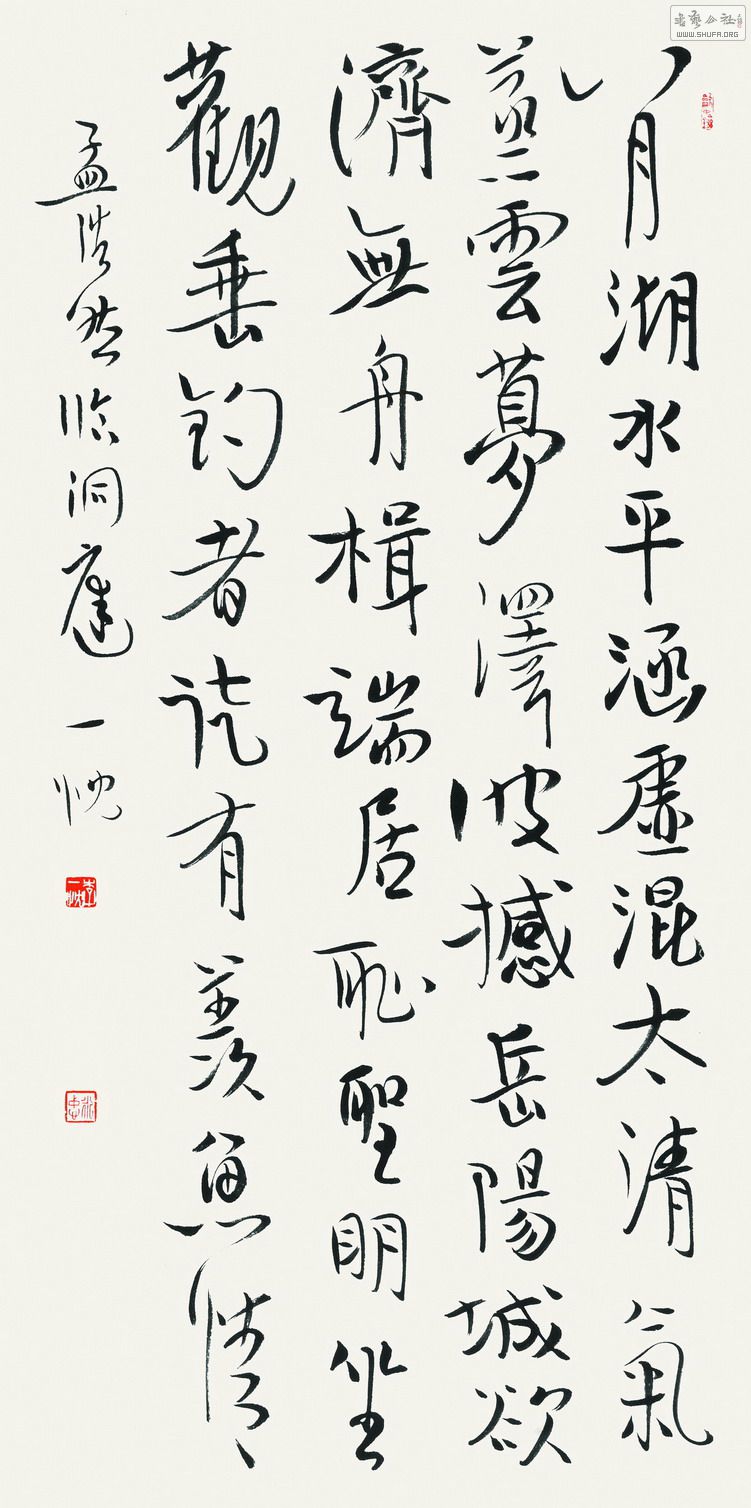 八月湖水平涵虛混太清氣
蒸雲夢澤波撼岳陽城欲
濟無舟楫端居恥聖明坐
觀垂釣者徒有羨魚情
孟浩然臨洞庭 一忱
李一忱
書藝公社
WWW.SHUFA.ORG